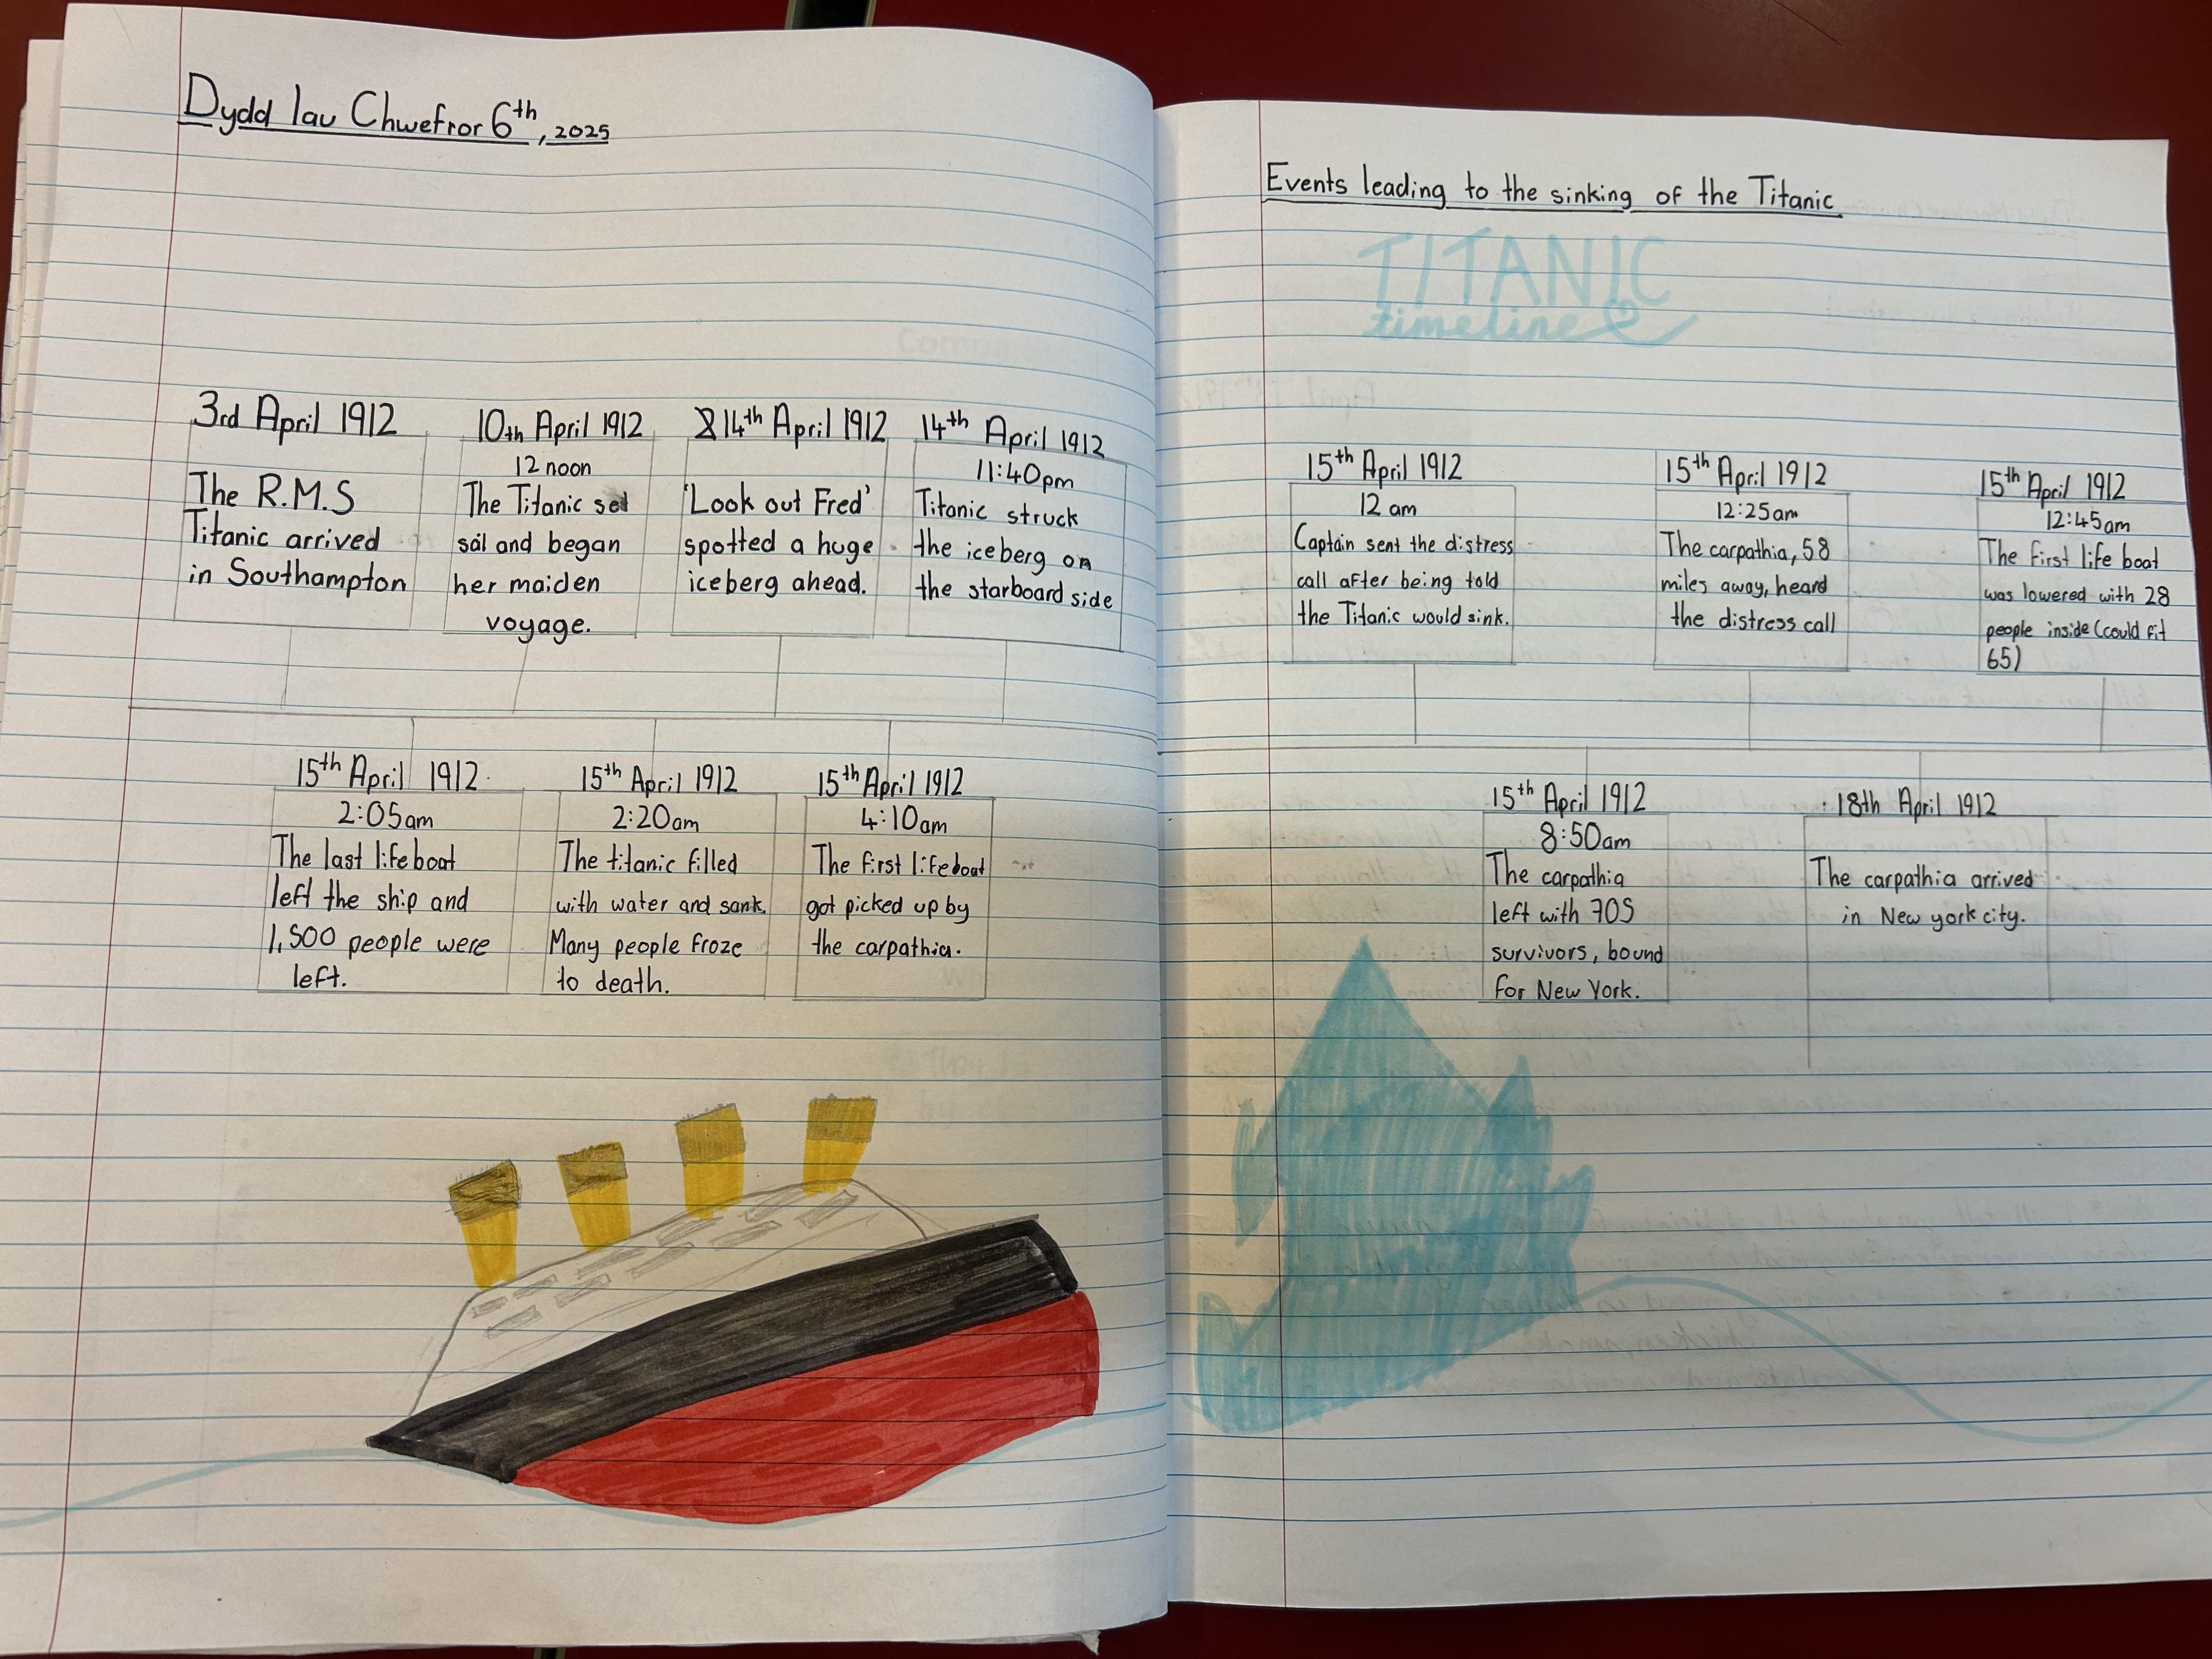 Dydd Iau Chwefror 6th, 2025
3rd April 1912
The R.M.S
Titanic arrived
in Southampton
10th April 1912
12 noon
The Titanic set
sail and began
her maiden
voyage.
14th April 1912
'Look out Fred'
spotted a huge
iceberg ahead.
14th April 1912
11:40pm
Titanic struck
the iceberg on
the starboard side
15th April 1912
2:05am
The last lifeboat
left the ship and
1,500 people were
left.
15th April 1912
2:20am
The titanic filled
with water and sank.
Many people froze
to death.
15th April 1912
4:10am
The first lifeboat
got picked up by
the carpathia.
Events leading to the sinking of the Titanic
TITANIC
timeline
15th April 1912
12 am
Captain sent the distress
call after being told
the Titanic would sink.
15th April 1912
12:25am
The carpathia, 58
miles away, heard
the distress call
15th April 1912
12:45am
The first life boat
was lowered with 28
people inside (could fit
65)
15th April 1912
8:50am
The carpathia
left with 705
survivors, bound
for New York.
18th April 1912
The carpathia arrived
in New york city.